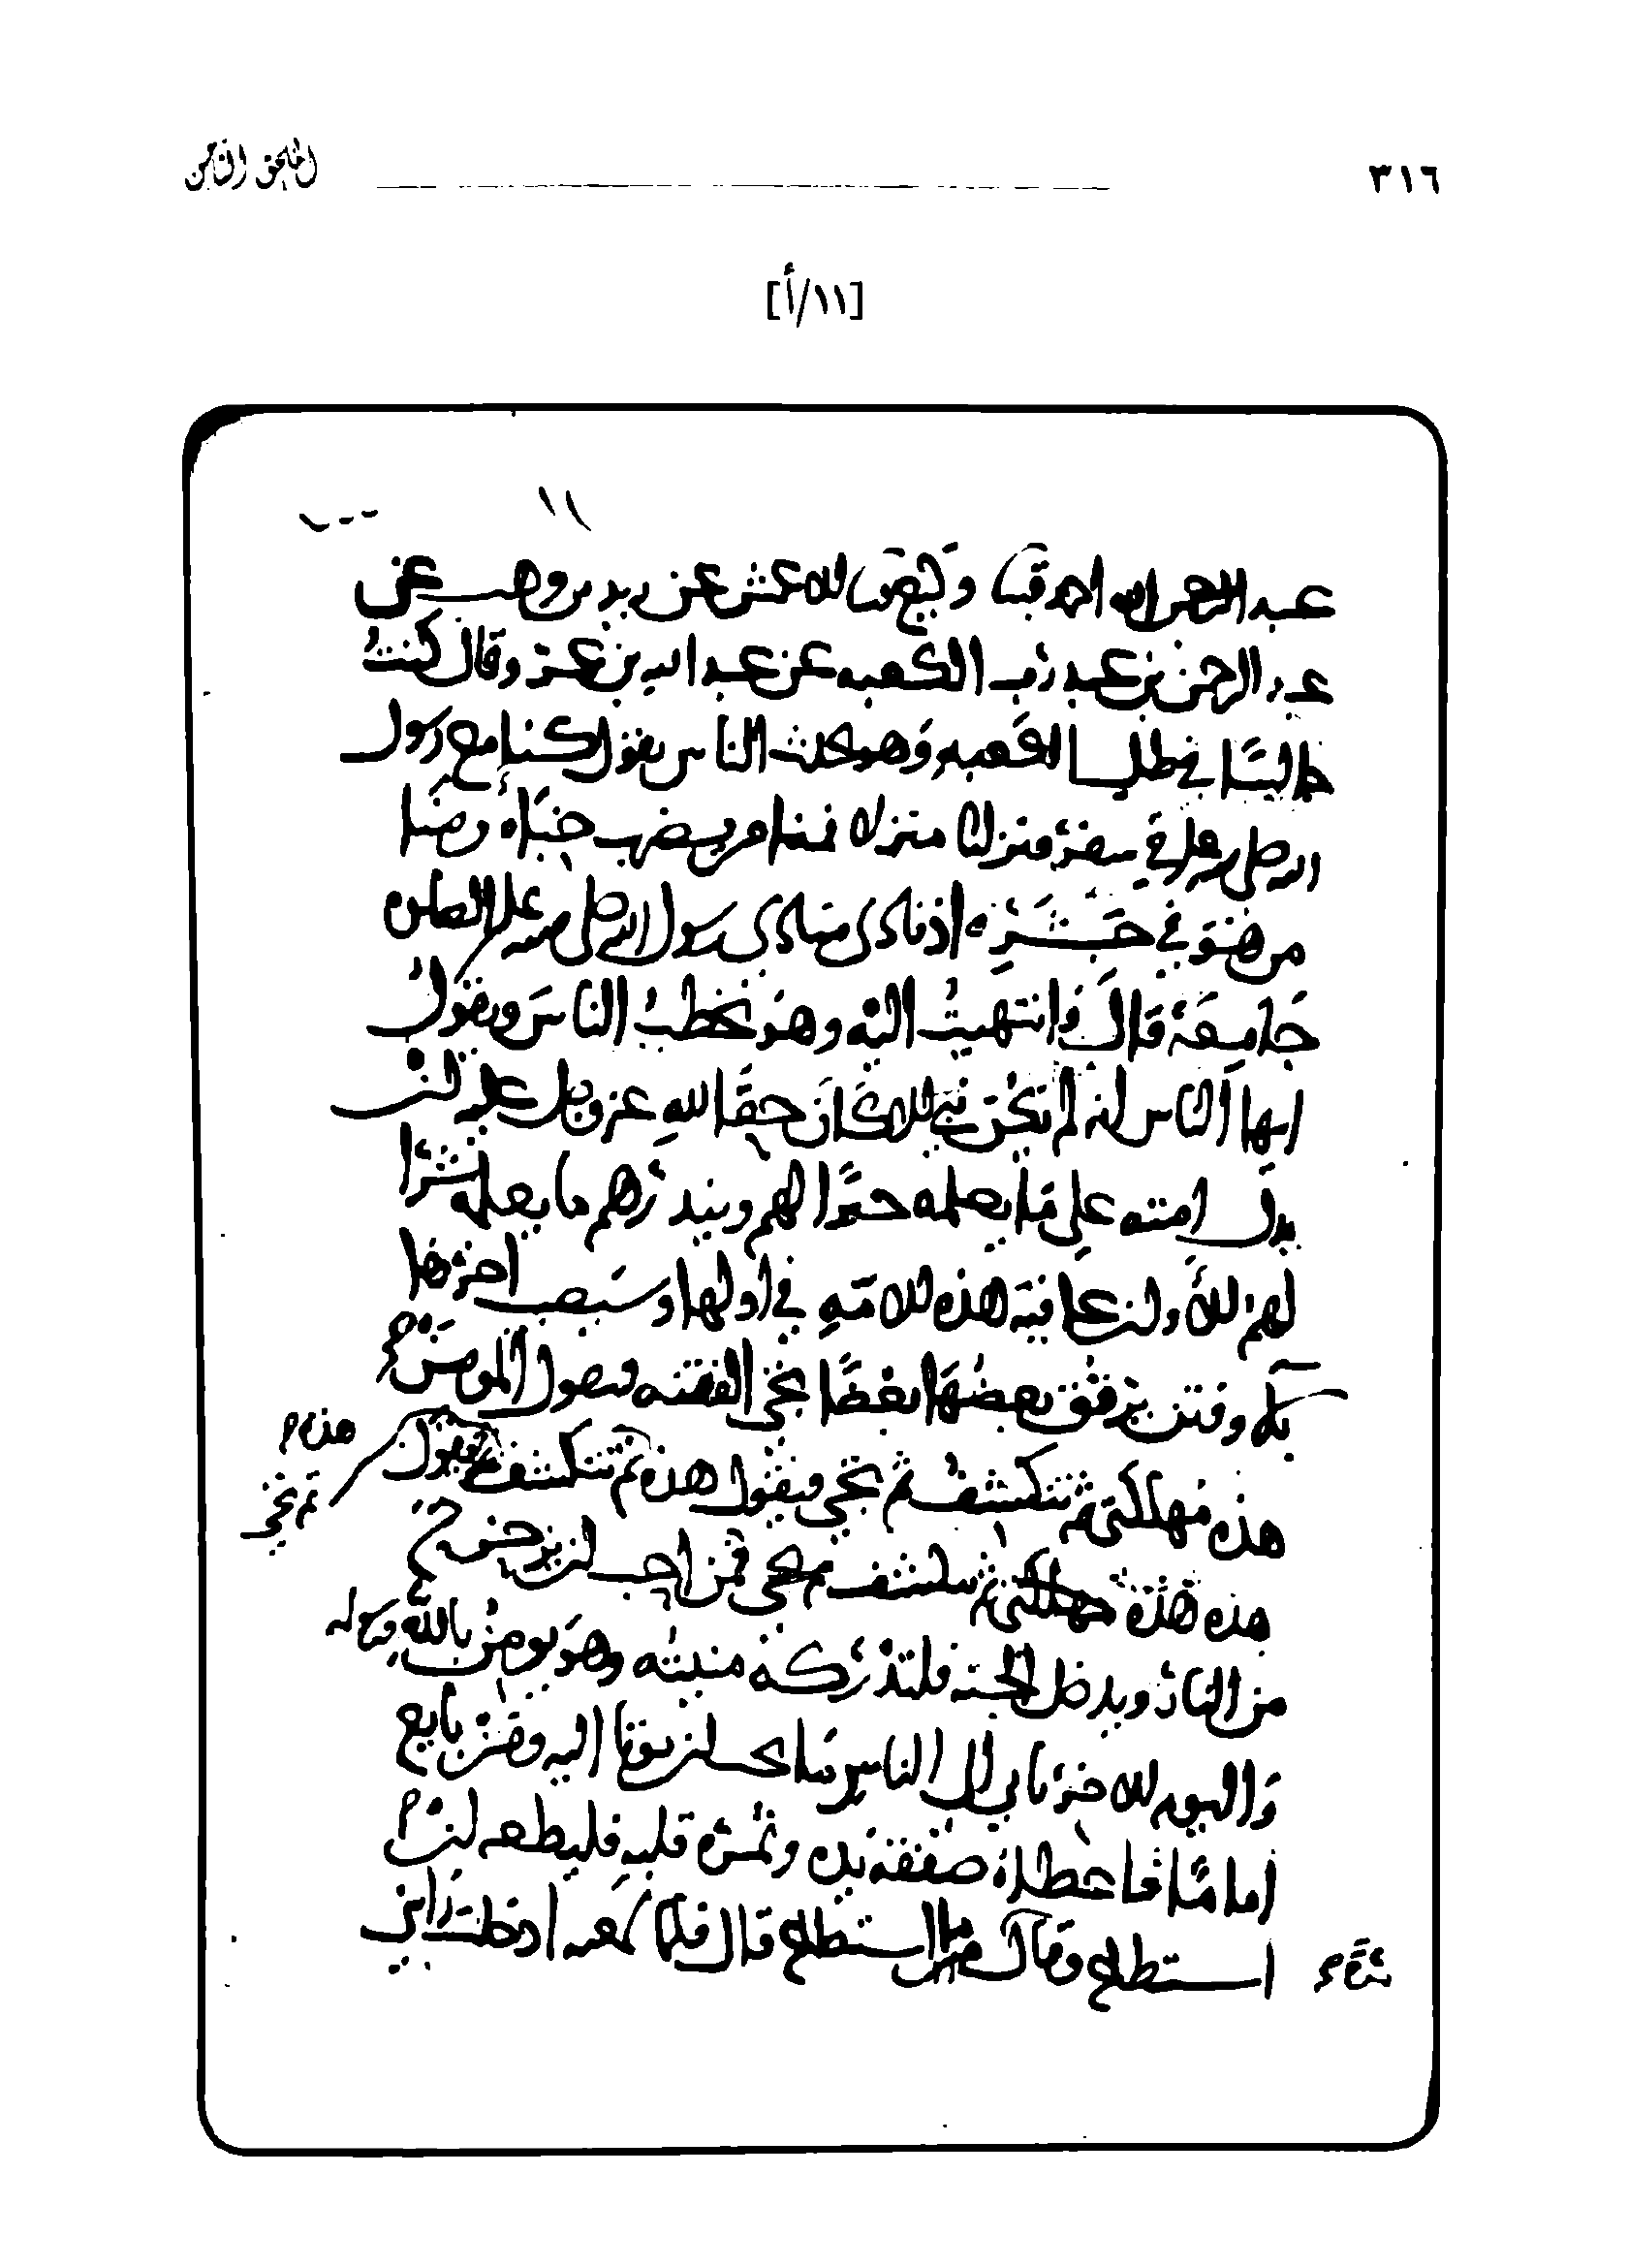 ٣١٦ الملحق الثامن
[١١/أ]
١١
عبد الرحمن احمد قثنا وكيع عن الاعمش عن زيد بن وهب عن
عبد الرحمن بن عبد رب الكعبه عن عبد الله بن عمرو قال كنتُ
جالسًا في ظل الكعبه وهو يحدث الناس يقول كنا مع رسول
الله صلى الله عليه في سفر فنزلنا منزلا فمنا من يضرب خباه ومنا
من هو في جَشَرِه اذ نادى منادى رسول الله صلى الله عليه الصلوه
جامعة قال فانتهيتُ اليه وهو يخطبُ الناسَ ويقولُ
ايها الناس انه لم يكن نبي الا كان حقا لله عز وجل عليه ان
يدل امته على ما يعلمه خيرًا لهم وينذرهم ما يعلمه شرا
لهم الا وان عافية هذه الامة في اولها وسيصيب اخرها
بلا وفتن يرقق بعضُها بعضًا تجي الفتنه فيقول المومن
هذه مهلكتي ثم تنكشفُ ثم تجي فيقول هذه ثم تنكشف فيقول
هذه ثم تجي
هذه هذه ثم تنكشف فمن احب ان يزحزح
من النار ويدخل الجنه فلتدركه منيته وهو يومن بالله ورسوله
واليوم الاخر ياتي الى الناس ما يحب ان يوتا اليه ومن بايع
اماما فاعطاه صفقة يده وثمره قلبه فليطعه ان
استطاع وقال مره ما استطاع قال فلما سمعه ادخلت راسي
مرة